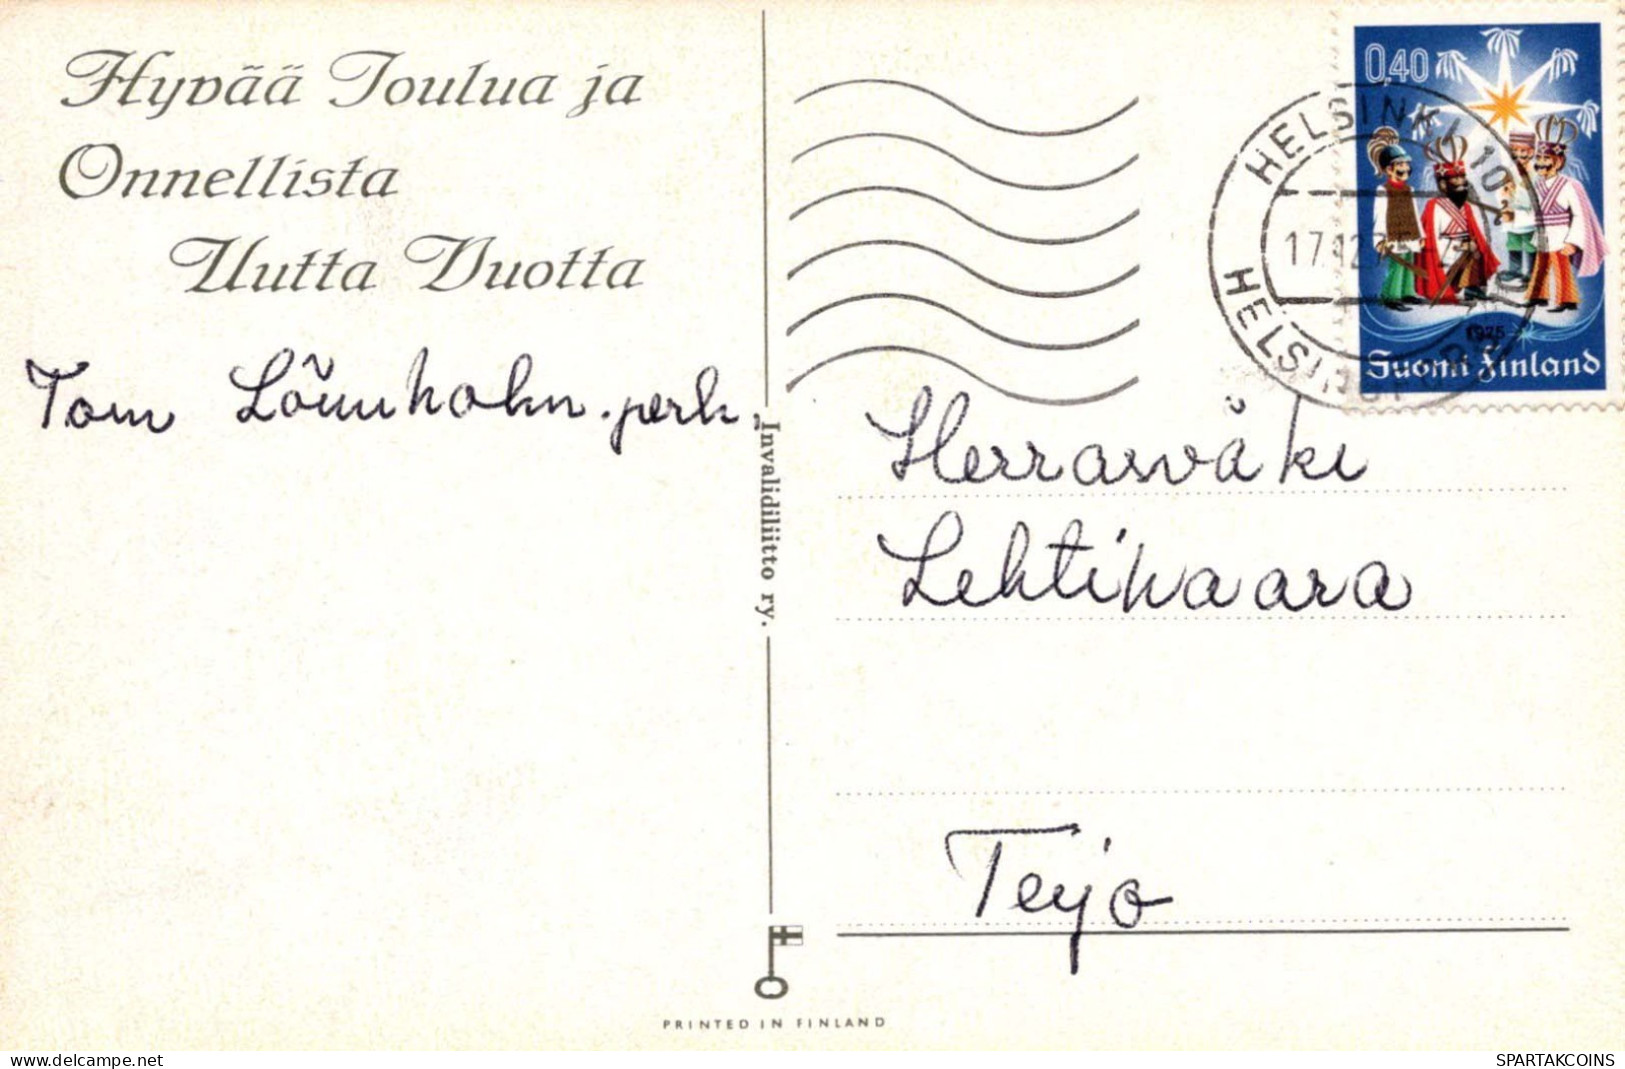 Hyvää Joulua ja
Onnellista
Uutta Vuotta
Tom Lönnholm perh.
Invalidiliitto ry.
PRINTED IN FINLAND
0,40
1975
Suomi Finland
HELSINKI 10
17.12.75
HELSINGFORS
Herrasväki
Lehtivaara
Teijo
delcampe.net
SPARTAKCOINS